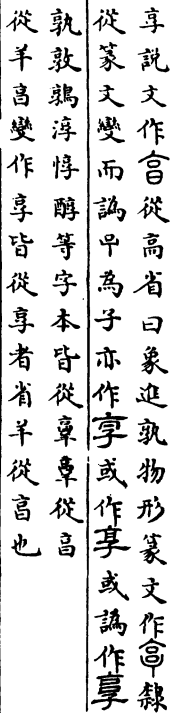 享說文作亯從高省曰象進孰物形篆文作隸
從篆文變而譌為子亦作享或作享或譌作享
孰敦鶉淳惇醇等字本皆從𦎫𦎫從亯
從羊亯變作享皆從享者省羊從亯也